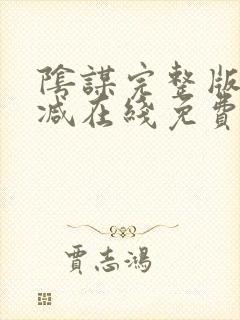 陰謀完整版
減在綫免費
賈志鴻